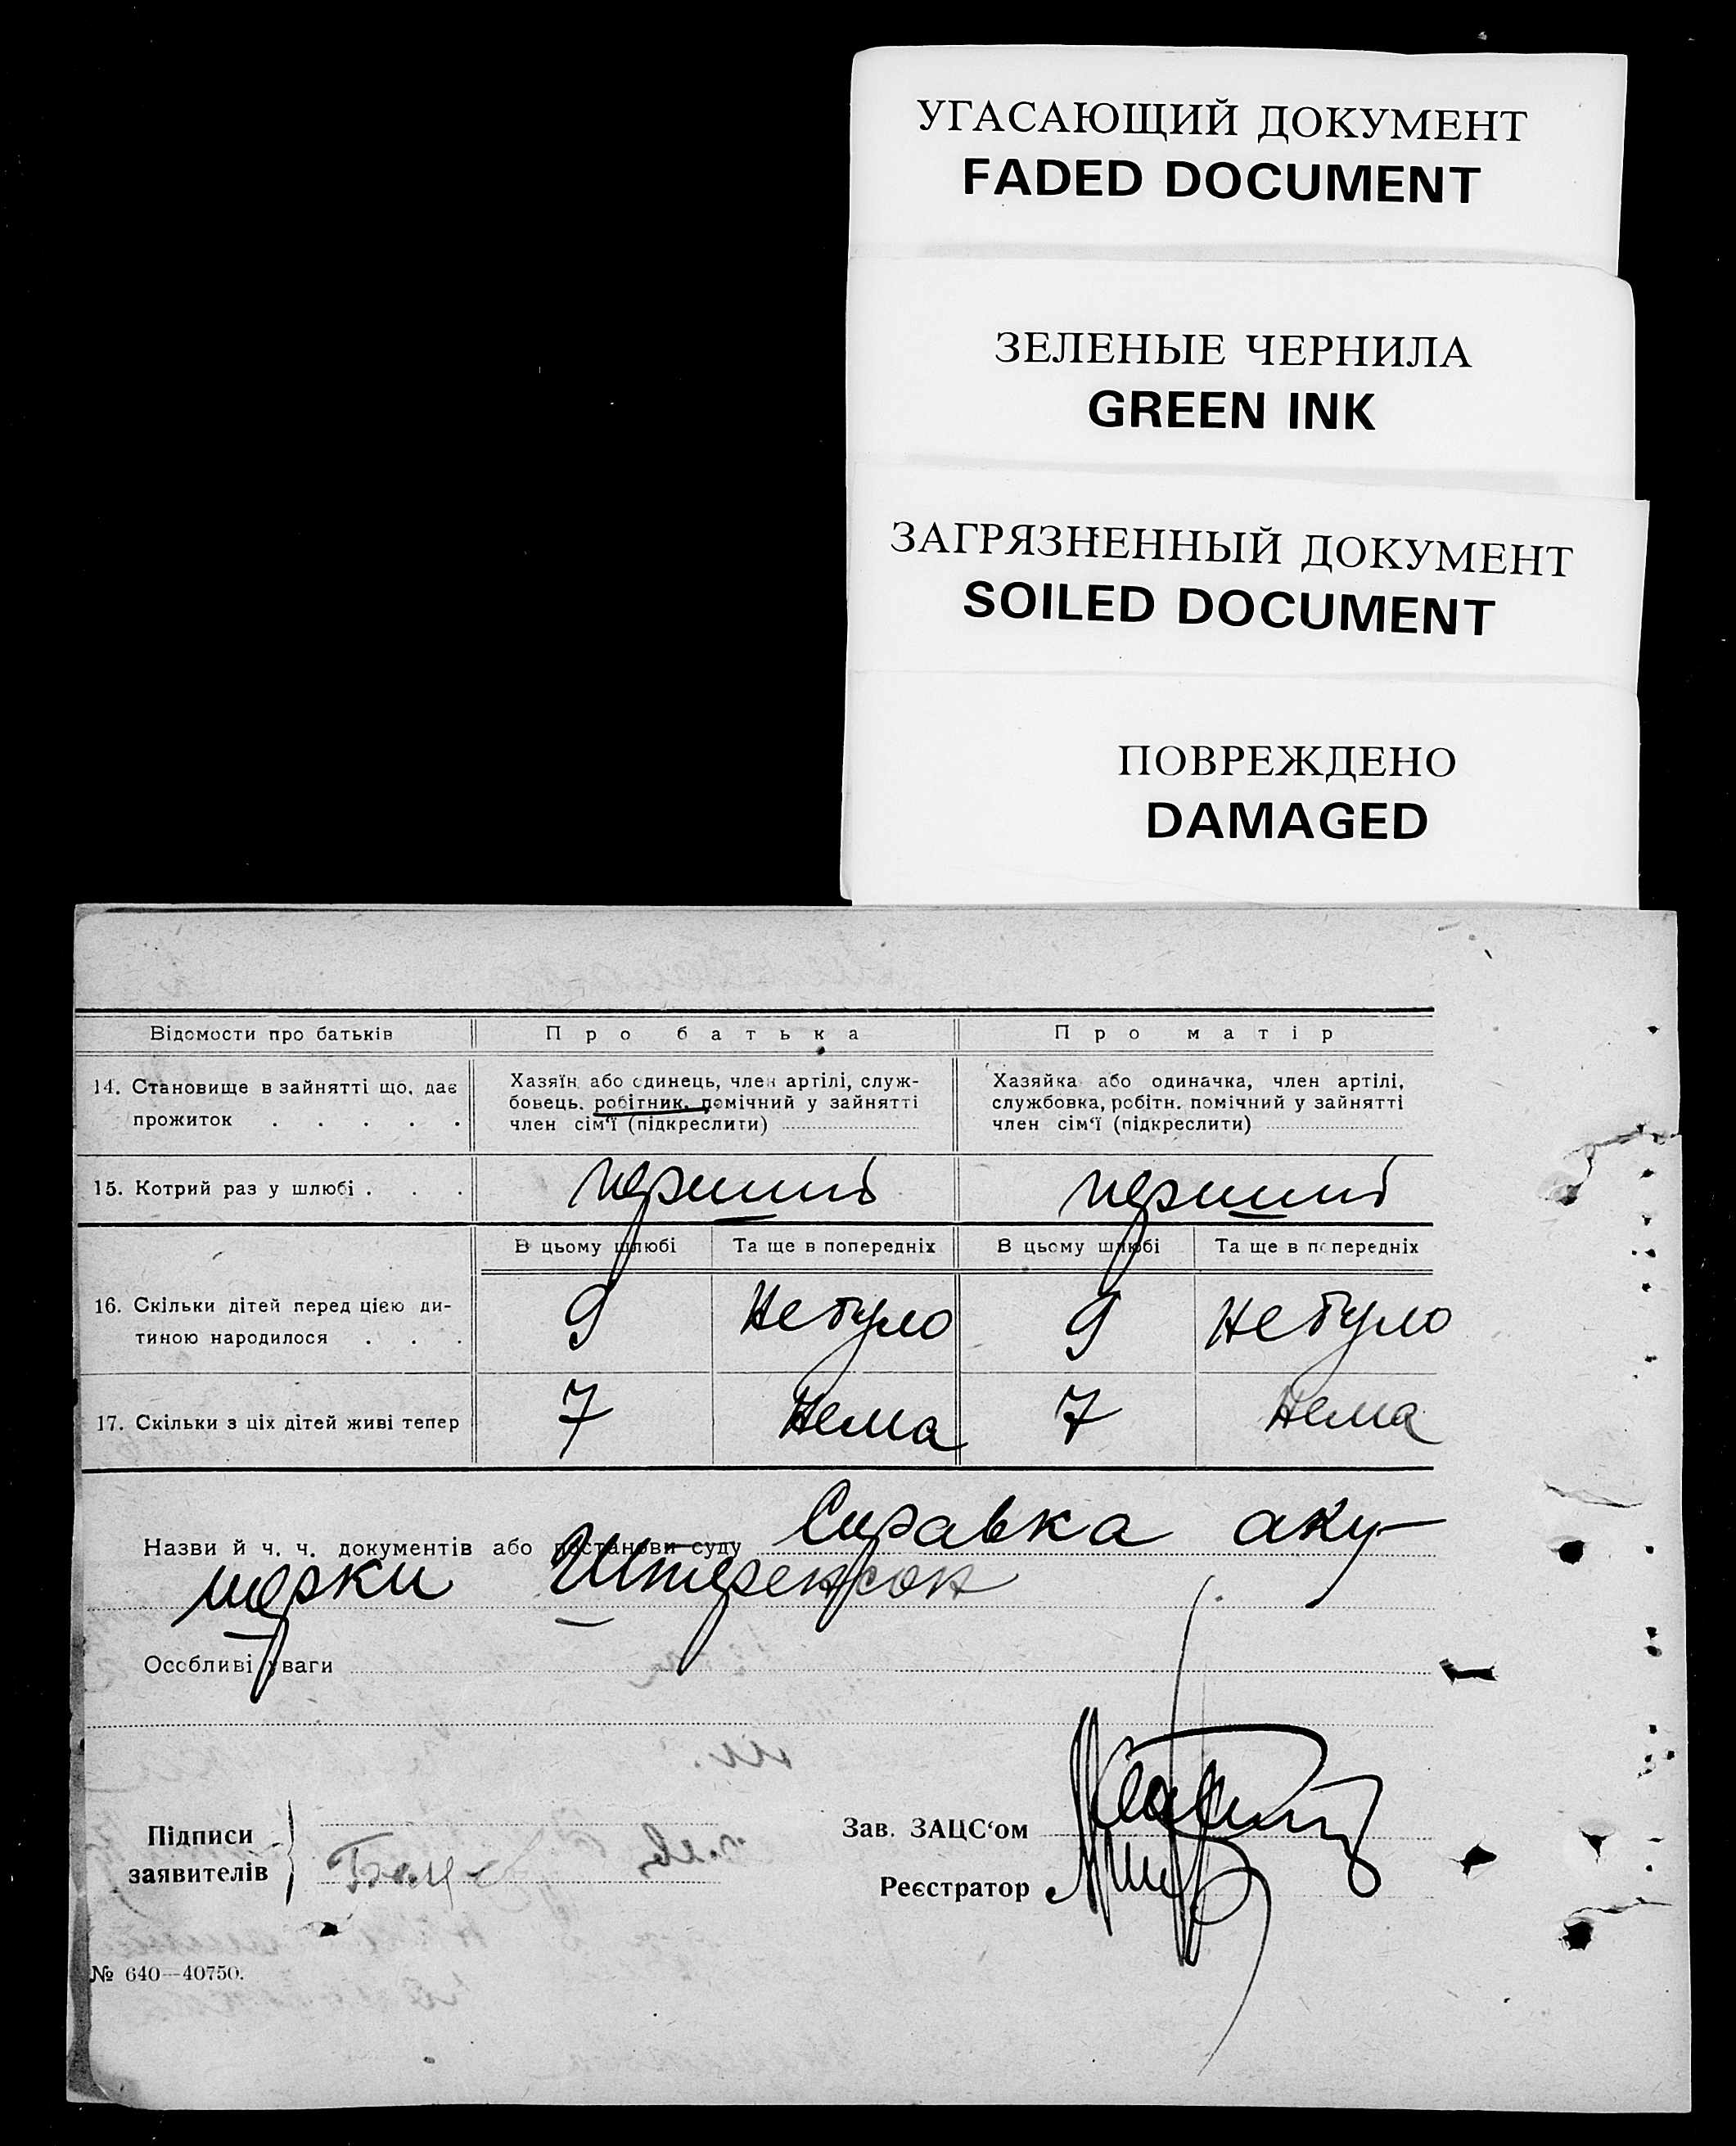 УГАСАЮЩИЙ ДОКУМЕНТ
FADED DOCUMENT
ЗЕЛЕНЫЕ ЧЕРНИЛА
GREEN INK
ЗАГРЯЗНЕННЫЙ ДОКУМЕНТ
SOILED DOCUMENT
ПОВРЕЖДЕНО
DAMAGED
Відомости про батьків
Про батька
Про матір
14. Становище в зайнятті що, дає
прожиток . . . . .
Хазяїн або єдинець, член артілі, служ-
бовець, робітник, помічний у зайнятті
член сім'ї (підкреслити)
Хазяйка або одиначка, член артілі,
службовка, робітн. помічний у зайнятті
член сім'ї (підкреслити)
15. Котрий раз у шлюбі . . .
перший
перший
В цьому шлюбі
Та ще в попередніх
В цьому шлюбі
Та ще в попередніх
16. Скільки дітей перед цією ди-
тиною народилося . . .
9
Не було
9
Не було
17. Скільки з ціх дітей живі тепер
7
Нема
7
Нема
Назви й ч. ч. документів або постанови суду Справка аку-
шерки
Особливі уваги
Підписи
заявителів
Зав. ЗАЦС'ом
Реєстратор
№ 640—40750.